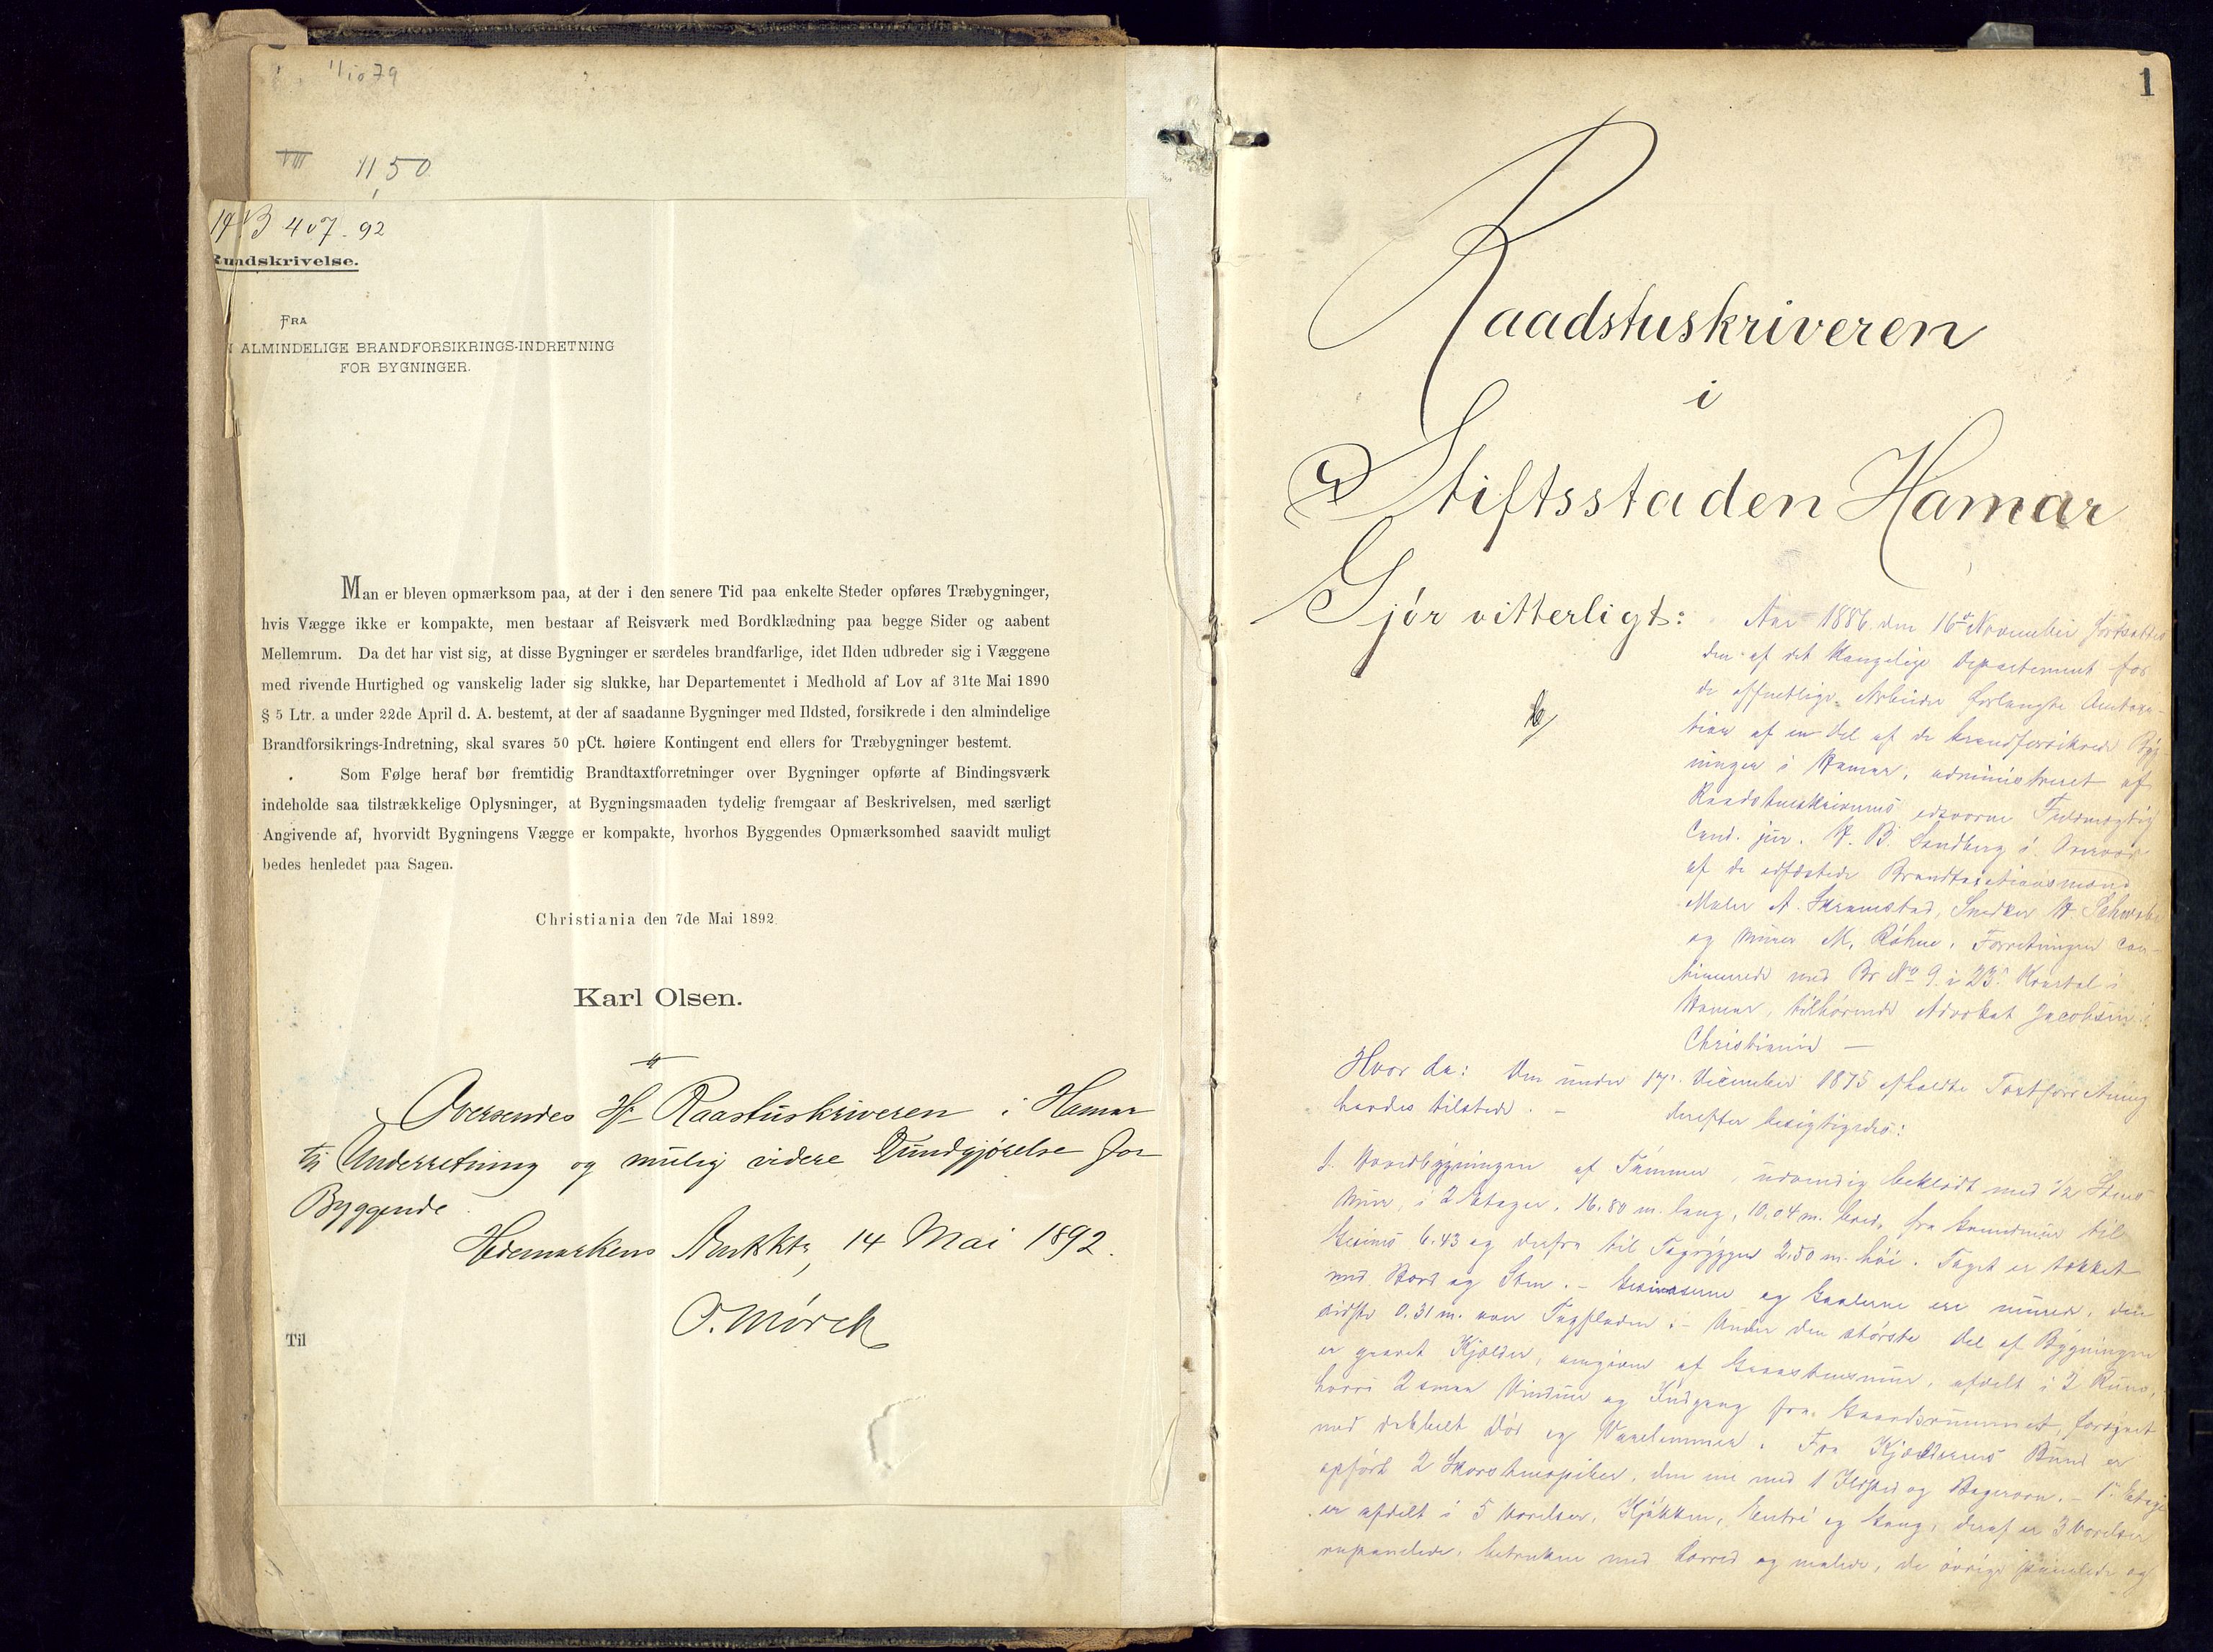 11/10 79
VIII 11,50
B 407. 92
Rundskrivelse.
FRA
N ALMINDELIGE BRANDFORSIKRINGS-INDRETNING
FOR BYGNINGER.
Man er bleven opmærksom paa, at der i den senere Tid paa enkelte Steder opføres Træbygninger,
hvis Vægge ikke er kompakte, men bestaar af Reisværk med Bordklædning paa begge Sider og aabent
Mellemrum. Da det har vist sig, at disse Bygninger er særdeles brandfarlige, idet Ilden udbreder sig i Væggene
med rivende Hurtighed og vanskelig lader sig slukke, har Departementet i Medhold af Lov af 31te Mai 1890
§ 5 Ltr. a under 22de April d. A. bestemt, at der af saadanne Bygninger med Ildsted, forsikrede i den almindelige
Brandforsikrings-Indretning, skal svares 50 pCt. høiere Kontingent end ellers for Træbygninger bestemt.
Som Følge heraf bør fremtidig Brandtaxtforretninger over Bygninger opførte af Bindingsværk
indeholde saa tilstrækkelige Oplysninger, at Bygningsmaaden tydelig fremgaar af Beskrivelsen, med særligt
Angivende af, hvorvidt Bygningens Vægge er kompakte, hvorhos Byggendes Opmærksomhed saavidt muligt
bedes henledet paa Sagen.
Christiania den 7de Mai 1892.
Karl Olsen.
Oversendes Hr Raastuskriveren i Hamar
til Underretning og mulig videre Kundgjørelse for
Byggende
Hedemarkens Amtkt, 14 Mai 1892.
O. Mørch
Til
1
Raadstuskriveren
i
Stiftsstaden Hamar
Gjør vitterligt: Aar 1886 den 16de November fortsattes
den af det Kongelige Departement for
de offentlige Arbeider forlangte Omtaxa-
tion af en Del af de brandforsikrede Byg-
ninger i Hamar, administreret af
Raadstueskriverens edsvorne Fuldmægtig
Cand. jur. H. B. Sandberg i Overvær
af de edfæstede Brandtaxationsmænd
Maler A. Skramstad, Snedker H. Schwabe
og Murer M. Røhne. Forretningen con-
tinuerede med Br No 9 i 23de Kvartal i
Hamar, tilhørende Advokat Jacobsen i
Christiania —
Hvor da: Den under 17de December 1875 afholdte Taxtforretning
havdes tilstede. – derefter besigtigedes:
1. Hovedbygningen af Tømmer, udvendig beklædt med 1/2 Stens
Mur, i 2 Etager, 16.80 m. lang, 10.04 m. bred, fra Grundmur til
Gesims 6.43 og derfra til Tagryggen 2.50 m. høi. Taget er tækket
med Bord og Sten. – Gesimserne og Gavlerne ere murede, den
sidste 0.31 m. over Tagfladen. – Under den største Del af Bygningen
er gravet Kjælder, omgiven af Graastensmur, afdelt i 2 Rum,
hvori 2 smaa Vinduer og Indgang fra Gaardsrummet, forsynet
med dobbelt Dør og Varelemmer. Fra Kjælderens Bund er
opført 2 Skorstenspiber, den ene med 1 Ildsted og Bagerovn. – 1ste Etage
er afdelt i 5 Værelser, Kjøkken, Entré og Gang, deraf er 3 Værelser
rupanelede, betrukne med Lærred og malede, de øvrige panelede og